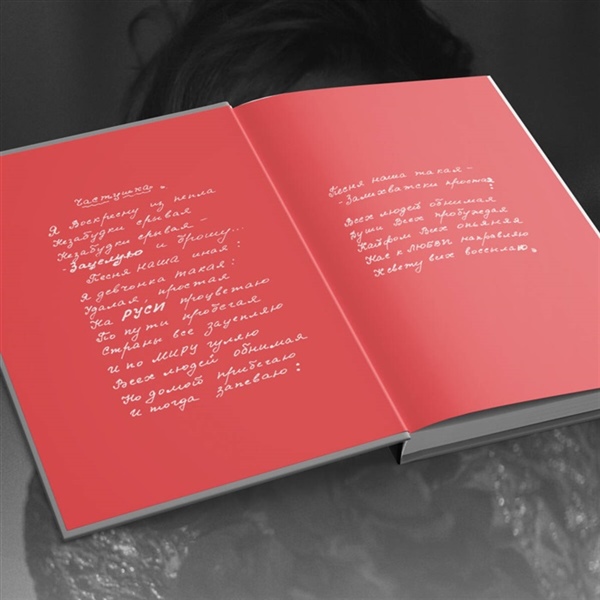 Частушка.
Я Воскресну из пепла
Незабудки срывая
Незабудки срывая –
- Зацелую и брошу...
Песня наша иная:
Я девчонка такая:
Удалая, простая
На РУСИ процветаю
По пути пробегая
Страны все зацепляю
И по МИРУ гуляю
Всех людей обнимая
Но домой прибегаю
И тогда запеваю:
Песня наша такая –
- Залихватски простая:
Всех людей обнимая
Души Всех пробуждая
Кайфом Всех опьяняя
Нас к ЛЮБВИ направляю
К свету всех восселяю.